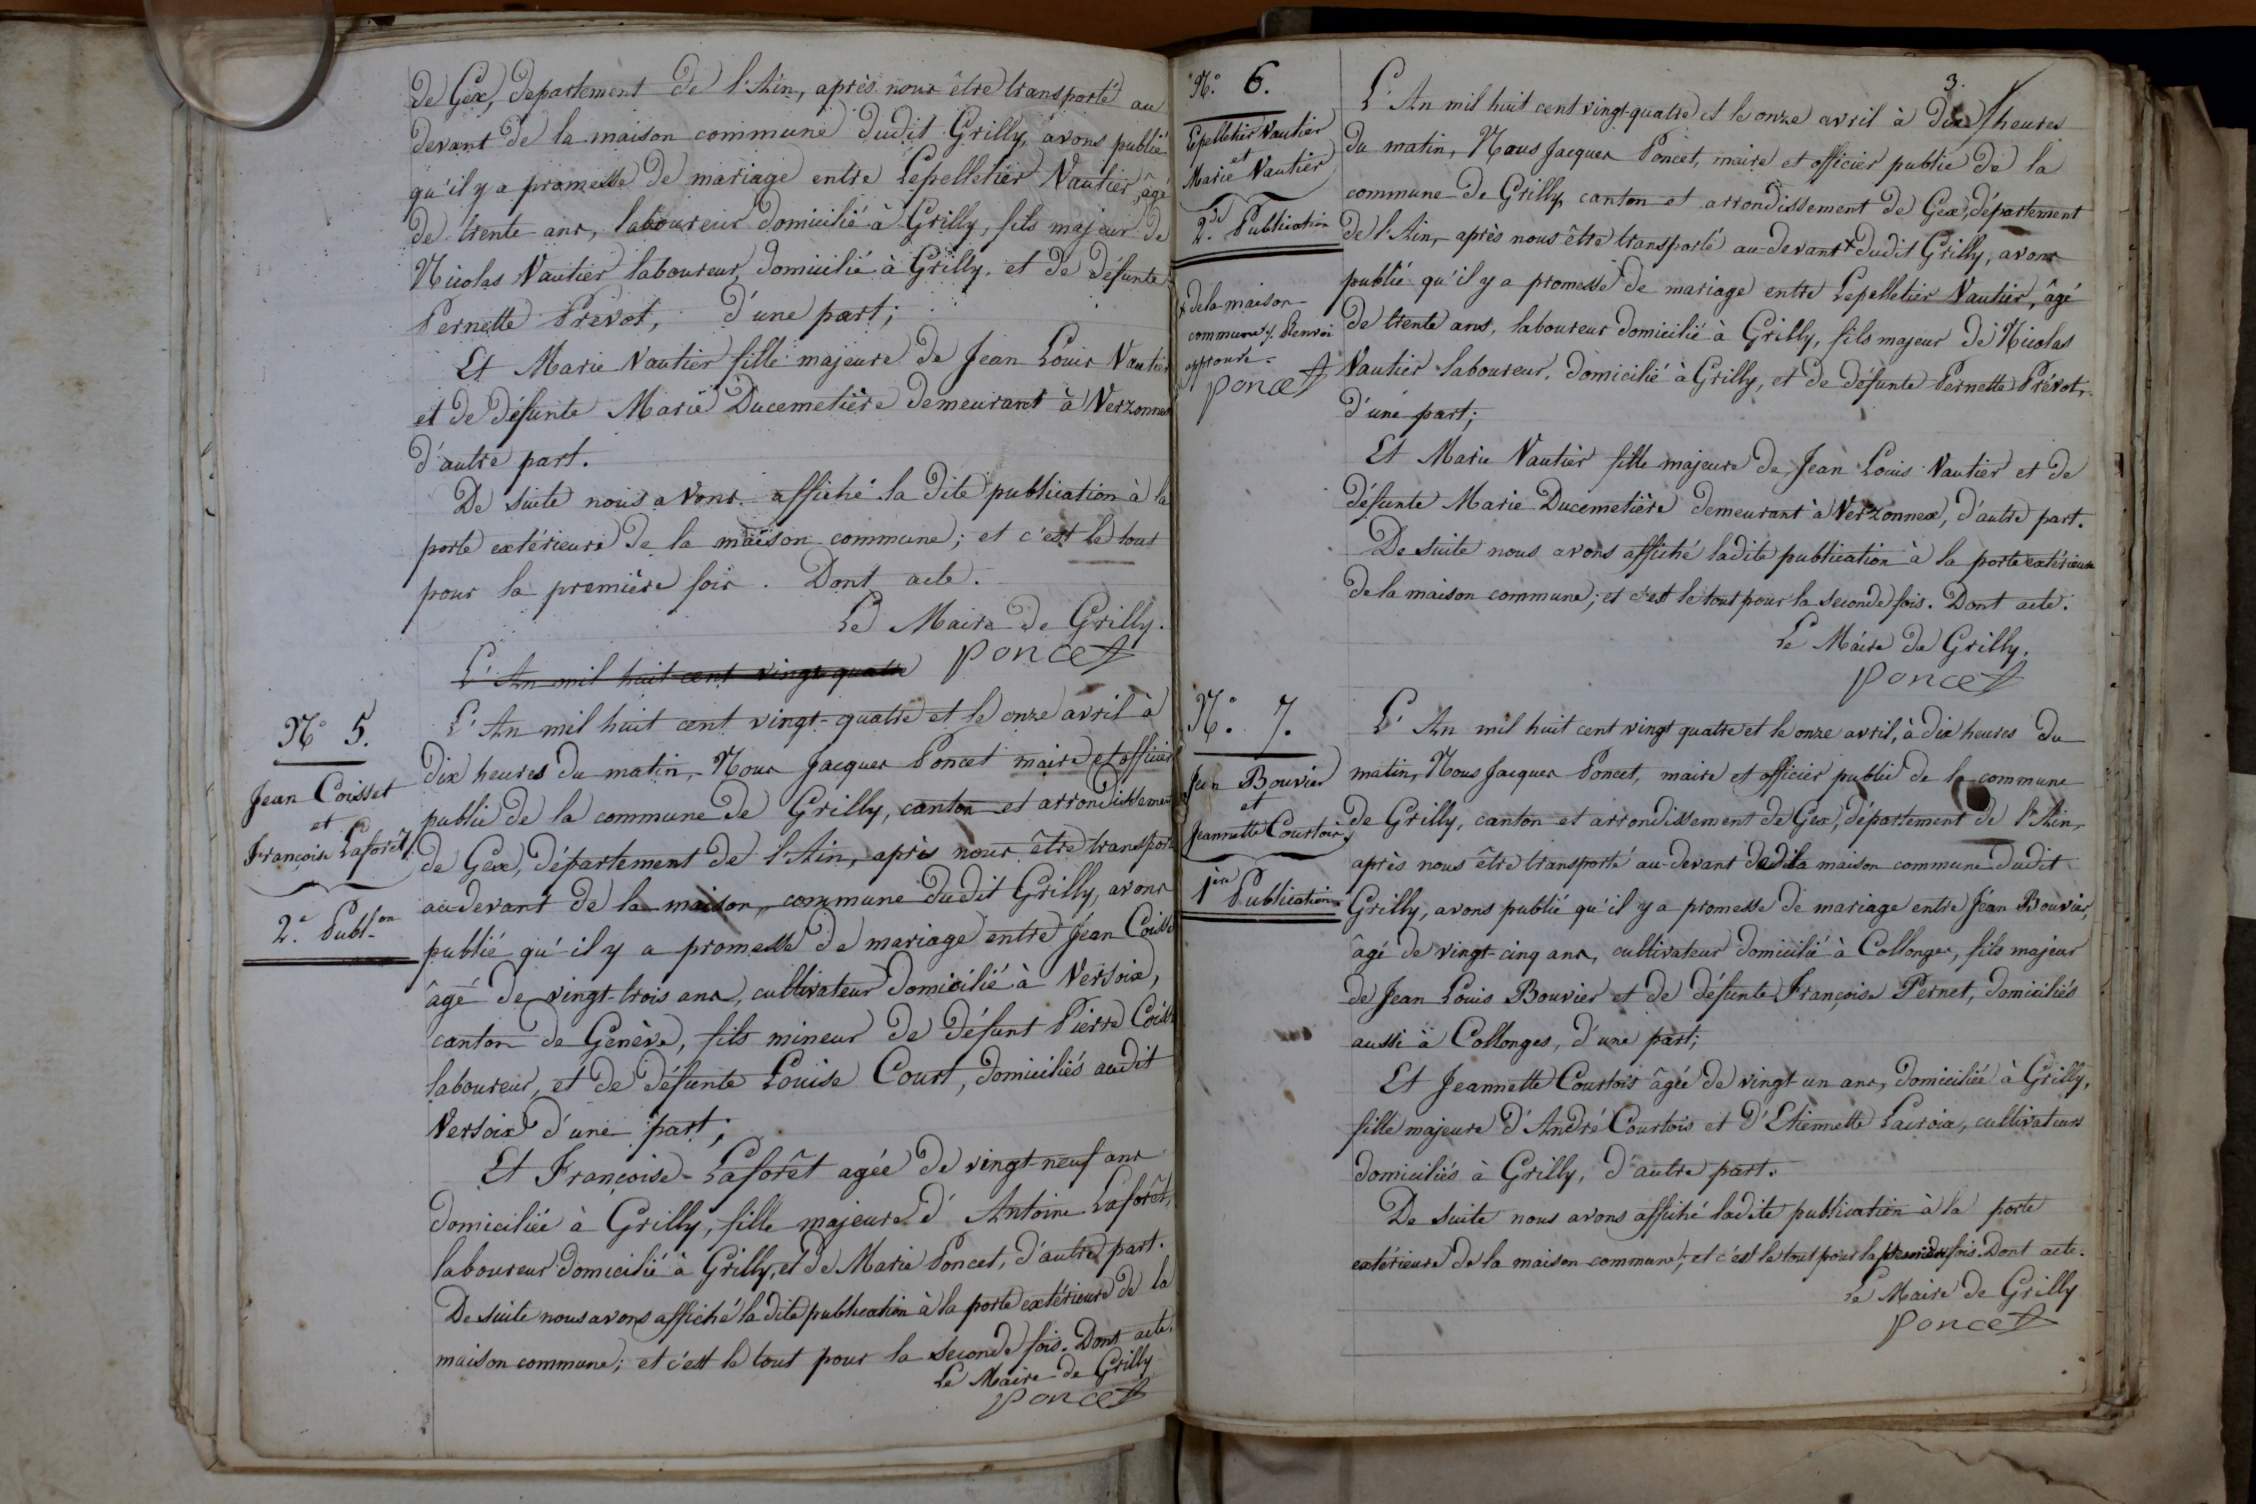 de Gex, departement de l'Ain, après nous être transporté au
devant de la maison commune dudit Grilly, avons publié
qu'il y a promesse de mariage entre Lepelletier Vautier, âgé
de trente ans, laboureur domicilié à Grilly, fils majeur de
Nicolas Vautier laboureur, domicilié à Grilly, et de défunte
Pernette Prévot, d'une part;
Et Marie Vautier fille majeure de Jean Louis Vautier
et de défunte Marie Ducemetière demeurant à Verzonnex
d'autre part.
De suite nous avons affiché la dite publication à la
porte extérieure de la maison commune; et c'est le tout
pour la première fois. Dont acte.
Le Maire de Grilly.
Poncet
L'An mil huit cent vingt quatre
N° 5.
Jean Coisset
et
Françoise Laforêt,
2.e Publ.on
L'An mil huit cent vingt-quatre et le onze avril à
dix heures du matin, Nous Jacques Poncet maire et officier
public de la commune de Grilly, canton et arrondissement
de Gex, département de l'Ain, après nous être transporté
au devant de la maison commune dudit Grilly, avons
publié qu'il y a promesse de mariage entre Jean Coisset
âgé de vingt-trois ans, cultivateur domicilié à Versoix,
canton de Genève, fils mineur de défunt Pierre Coisset
laboureur, et de défunte Louise Court, domiciliés audit
Versoix d'une part;
Et Françoise Laforêt agée de vingt-neuf ans
domiciliée à Grilly, fille majeure d'Antoine Laforêt,
laboureur domicilié à Grilly, et de Marie Poncet, d'autre part.
De suite nous avons affiché la dite publication à la porte extérieure de la
maison commune; et c'est le tout pour la seconde fois. Dont acte.
Le Maire de Grilly
Poncet
3.
N.° 6.
Lepelletier Vautier
et
Marie Vautier
2.de Publication
+ de la maison
commune /. Renvoi
approuvé.
Poncet
L'An mil huit cent vingt-quatre et le onze avril à dix heures
du matin, Nous Jacques Poncet, maire et officier public de la
commune de Grilly, canton et arrondissement de Gex, département
de l'Ain, après nous être transporté au-devant + dudit Grilly, avons
publié qu'il y a promesse de mariage entre Lepelletier Vautier, âgé
de trente ans, laboureur domicilié à Grilly, fils majeur de Nicolas
Vautier laboureur, domicilié à Grilly, et de défunte Pernette Prévot,
d'une part;
Et Marie Vautier fille majeure de Jean Louis Vautier et de
défunte Marie Ducemetière demeurant à Verzonnex, d'autre part.
De suite nous avons affiché ladite publication à la porte extérieure
de la maison commune; et c'est le tout pour la seconde fois. Dont acte.
Le Maire de Grilly.
Poncet
N.° 7.
Jean Bouvier
et
Jeannette Courtois,
1ère Publication
L'An mil huit cent vingt quatre et le onze avril, à dix heures du
matin, Nous Jacques Poncet, maire et officier public de la commune
de Grilly, canton et arrondissement de Gex, département de l'Ain,
après nous être transporté au-devant de la maison commune dudit
Grilly, avons publié qu'il y a promesse de mariage entre Jean Bouvier,
âgé de vingt-cinq ans, cultivateur domicilié à Collonges, fils majeur
de Jean Louis Bouvier et de défunte Françoise Pernet, domiciliés
aussi à Collonges, d'une part;
Et Jeannette Courtois âgée de vingt un ans, domiciliée à Grilly,
fille majeure d'André Courtois et d'Etiennette Lacroix, cultivateurs
domiciliés à Grilly, d'autre part.
De suite nous avons affiché ladite publication à la porte
extérieure de la maison commune; et c'est le tout pour la première fois. Dont acte.
Le Maire de Grilly
Poncet